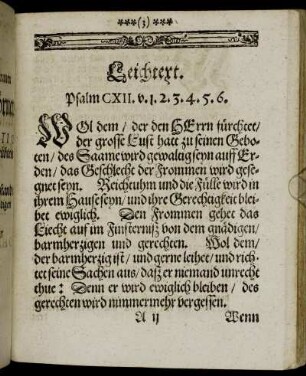 ***(3)***
Leichtext.
Psalm CXII. v. 1. 2. 3. 4. 5. 6.
WOl dem / der den HErrn fürchtet /
der grosse Lust hatt zu seinen Gebo-
ten / des Saame wird gewaltig seyn auff Er-
den / das Geschlecht der Frommen wird gese-
gnet seyn. Reichtuhm und die Fülle wird in
ihrem Hause seyn / und ihre Gerechtigkeit blei-
bet ewiglich. Den Frommen gehet das
Liecht auf im Finsternüß von dem gnädigen /
barmhertzigen und gerechten. Wol dem /
der barmhertzig ist / und gerne leihet / und rich-
tet seine Sachen aus / daß er niemand unrecht
thue: Denn er wird ewiglich bleiben / des
gerechten wird nimmermehr vergessen.
A ij Wenn